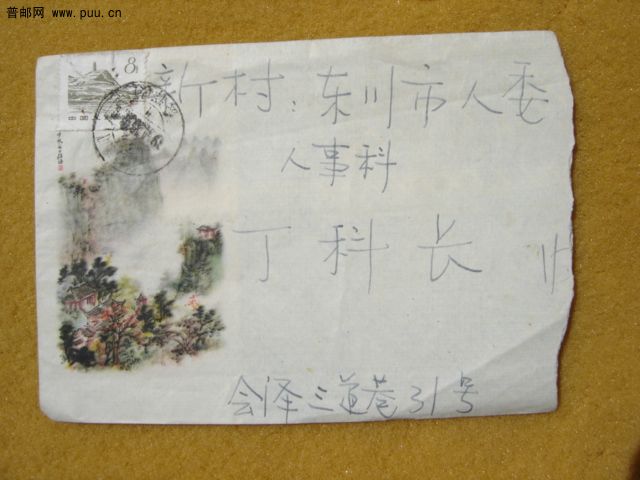 普邮网 www.puu.cn
8
新村：东川市人委
人事科
丁科长
会泽三道巷31号